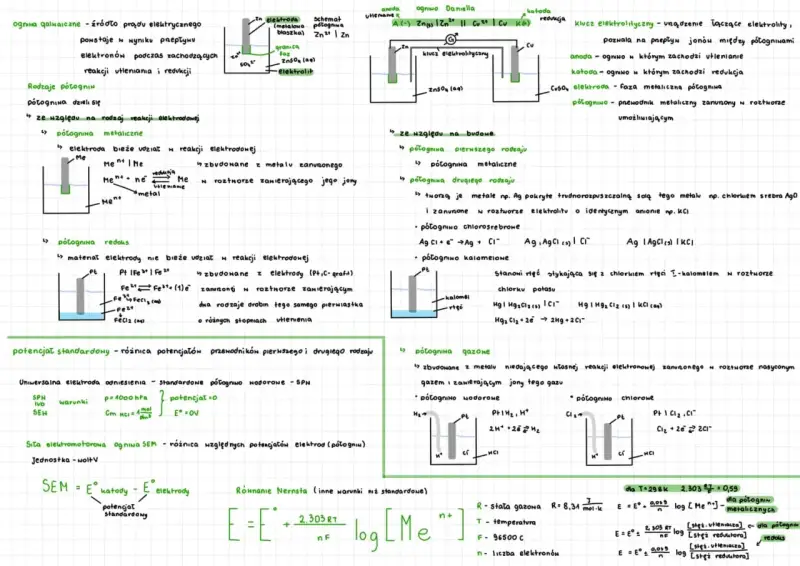 ogniwa galwaniczne - źródło prądu elektrycznego
powstaje w wyniku przepływu
elektronów podczas zachodzących
reakcji utleniania i redukcji
Zn
elektroda
(metalowa
blaszka)
granica
faz
Zn²⁺
SO₄²⁻
ZnSO₄ (aq)
elektrolit
schemat
półogniwa
Zn²⁺ | Zn
anoda
utlenianie
ogniwo Daniella
katoda
redukcja
A (-) Zn(s) | Zn²⁺ || Cu²⁺ | Cu K(+)
Zn
klucz elektrolityczny
Cu
ZnSO₄ (aq)
CuSO₄
klucz elektrolityczny - urządzenie łączące elektrolity,
pozwala na przepływ jonów między półogniwami
anoda - ogniwo w którym zachodzi utlenianie
katoda - ogniwo w którym zachodzi redukcja
elektroda - faza metaliczna półogniwa
półogniwo - przewodnik metaliczny zanurzony w roztworze
umożliwiającym
Rodzaje półogniw
półogniwa dzieli się
↳ ze względu na rodzaj reakcji elektrodowej
↳ półogniwa metaliczne
↳ elektroda bierze udział w reakcji elektrodowej
Me
Meⁿ⁺
Meⁿ⁺ | Me
Meⁿ⁺ + ne⁻ ⇄ Me
redukcja
utlenianie
metal
↳ zbudowane z metalu zanurzonego
w roztworze zawierającego jego jony
↳ półogniwa redoks
↳ materiał elektrody nie bierze udział w reakcji elektrodowej
Pt
Pt | Fe²⁺ | Fe³⁺
Fe³⁺ FeCl₃ (aq)
Fe²⁺
FeCl₂ (aq)
↳ zbudowane z elektrody (Pt, C-grafit)
zanurzonej w roztworze zawierającym
dwa rodzaje drobin tego samego pierwiastka
o różnych stopniach utlenienia
↳ ze względu na budowę
↳ półogniwa pierwszego rodzaju
↳ półogniwa metaliczne
↳ półogniwa drugiego rodzaju
↳ tworzą je metale np. Ag pokryte trudnorozpuszczalną solą tego metalu np. chlorkiem srebra
i zanurzone w roztworze elektrolitu o identycznym anionie np. KCl
• półogniwo chlorosrebrowe
AgCl + e⁻ → Ag + Cl⁻ Ag | AgCl (s) | Cl⁻ Ag | AgCl (s) | KCl
• półogniwo kalomelowe
Pt
kalomel
rtęć
Stanowi rtęć stykająca się z chlorkiem rtęci I-kalomelem w roztworze
chlorku potasu
Hg | Hg₂Cl₂ (s) | Cl⁻ Hg | Hg₂Cl₂ (s) | KCl (aq)
Hg₂Cl₂ + 2e⁻ → 2Hg + 2Cl⁻
potencjał standardowy - różnica potencjałów przewodników pierwszego i drugiego rodzaju
Uniwersalna elektroda odniesienia - standardowe półogniwo wodorowe - SPW
lub
SEW
warunki
potencjał = 0
E° = 0V
Siła elektromotoryczna ogniwa SEM - różnica względnych potencjałów elektrod (półogniw)
jednostka - wolt V
SEM = E° katody - E° elektrody
potencjał
standardowy
↳ półogniwa gazowe
↳ zbudowane z metalu niedającego własnej reakcji elektronowej zanurzonego w roztworze nasyconym
gazem i zawierającym jony tego gazu
• półogniwo wodorowe
H₂
Pt
H⁺
Cl⁻
HCl
Pt | H₂, H⁺
2H⁺ + 2e⁻ ⇄ H₂
• półogniwo chlorowe
Cl₂
Pt
H⁺
Cl⁻
HCl
Pt | Cl₂, Cl⁻
Cl₂ + 2e⁻ ⇄ 2Cl⁻
Równanie Nernsta (inne warunki niż standardowe)
E = E° + 2,303 RT / nF log [Meⁿ⁺]
R - stała gazowa R = 8,31 J / mol·k
T - temperatura
F - 96500 C
n - liczba elektronów
dla T=298k 2,303 RT/F = 0,59
log [Meⁿ⁺] - dla półogniw
metalicznych
E = E° ± 2,303 RT / nF log [stęż. utleniacza] / [stęż reduktora] - dla półogniw
redoks
log [stęż. utleniacza] / [stęż reduktora]